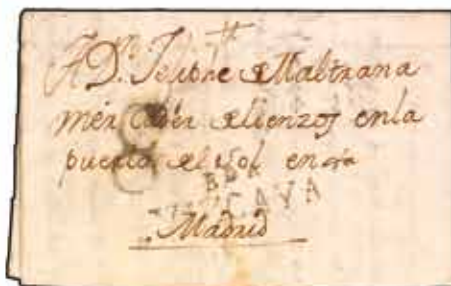 A Dn. de Maltrana
mercader de lienzos en la
puerta del sol en
VIZCAYA
Madrid